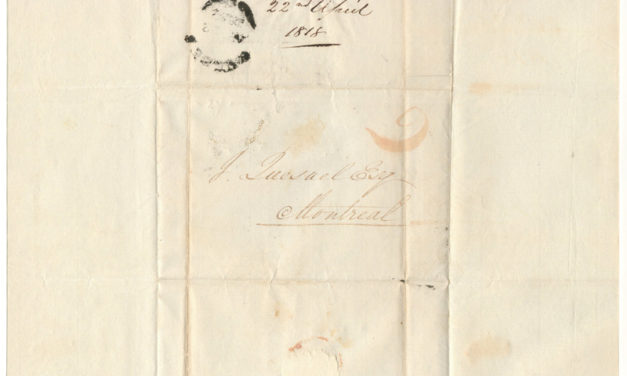 22nd April
1818
J. Quesnel Esqr
Montreal